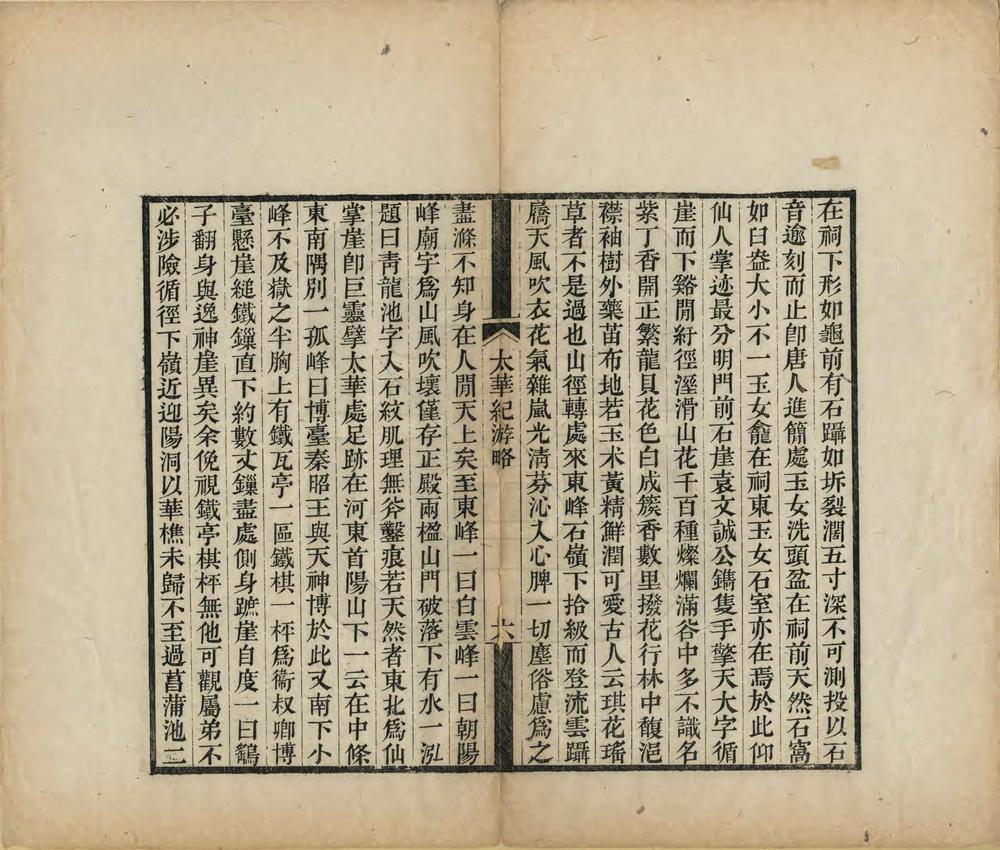 在祠下形如龜前有石躡如坼裂濶五寸深不可測投以石
音逾刻而止卽唐人進簡處玉女洗頭盆在祠前天然石窩
如臼盎大小不一玉女龕在祠東玉女石室亦在焉於此仰
仙人掌迹最分明門前石崖袁文誠公鐫隻手擎天大字循
崖而下谿閒紆徑溼滑山花千百種燦爛滿谷中多不識名
紫丁香開正繁龍貝花色白成簇香數里撥花行林中馥浥
襟袖樹外藥苗布地若玉朮黃精鮮潤可愛古人云琪花瑤
草者不是過也山徑轉處來東峰石嶺下拾級而登流雲躡
屩天風吹衣花氣雜嵐光淸芬沁入心脾一切塵俗慮爲之
太華紀游略
六
盡滌不知身在人閒天上矣至東峰一曰白雲峰一曰朝陽
峰廟宇爲山風吹壞僅存正殿兩楹山門破落下有水一泓
題曰靑龍池字入石紋肌理無斧鑿痕若天然者東北爲仙
掌崖卽巨靈擘太華處足跡在河東首陽山下一云在中條
東南隅別一孤峰曰博臺秦昭王與天神博於此又南下小
峰不及嶽之半胸上有鐵瓦亭一區鐵棋一枰爲衞叔卿博
臺懸崖縋鐵鏁直下約數丈鏁盡處側身蹠崖自度一曰鷂
子翻身與逸神崖異矣余俛視鐵亭棋枰無他可觀屬弟不
必涉險循徑下嶺近迎陽洞以華樵未歸不至過菖蒲池二